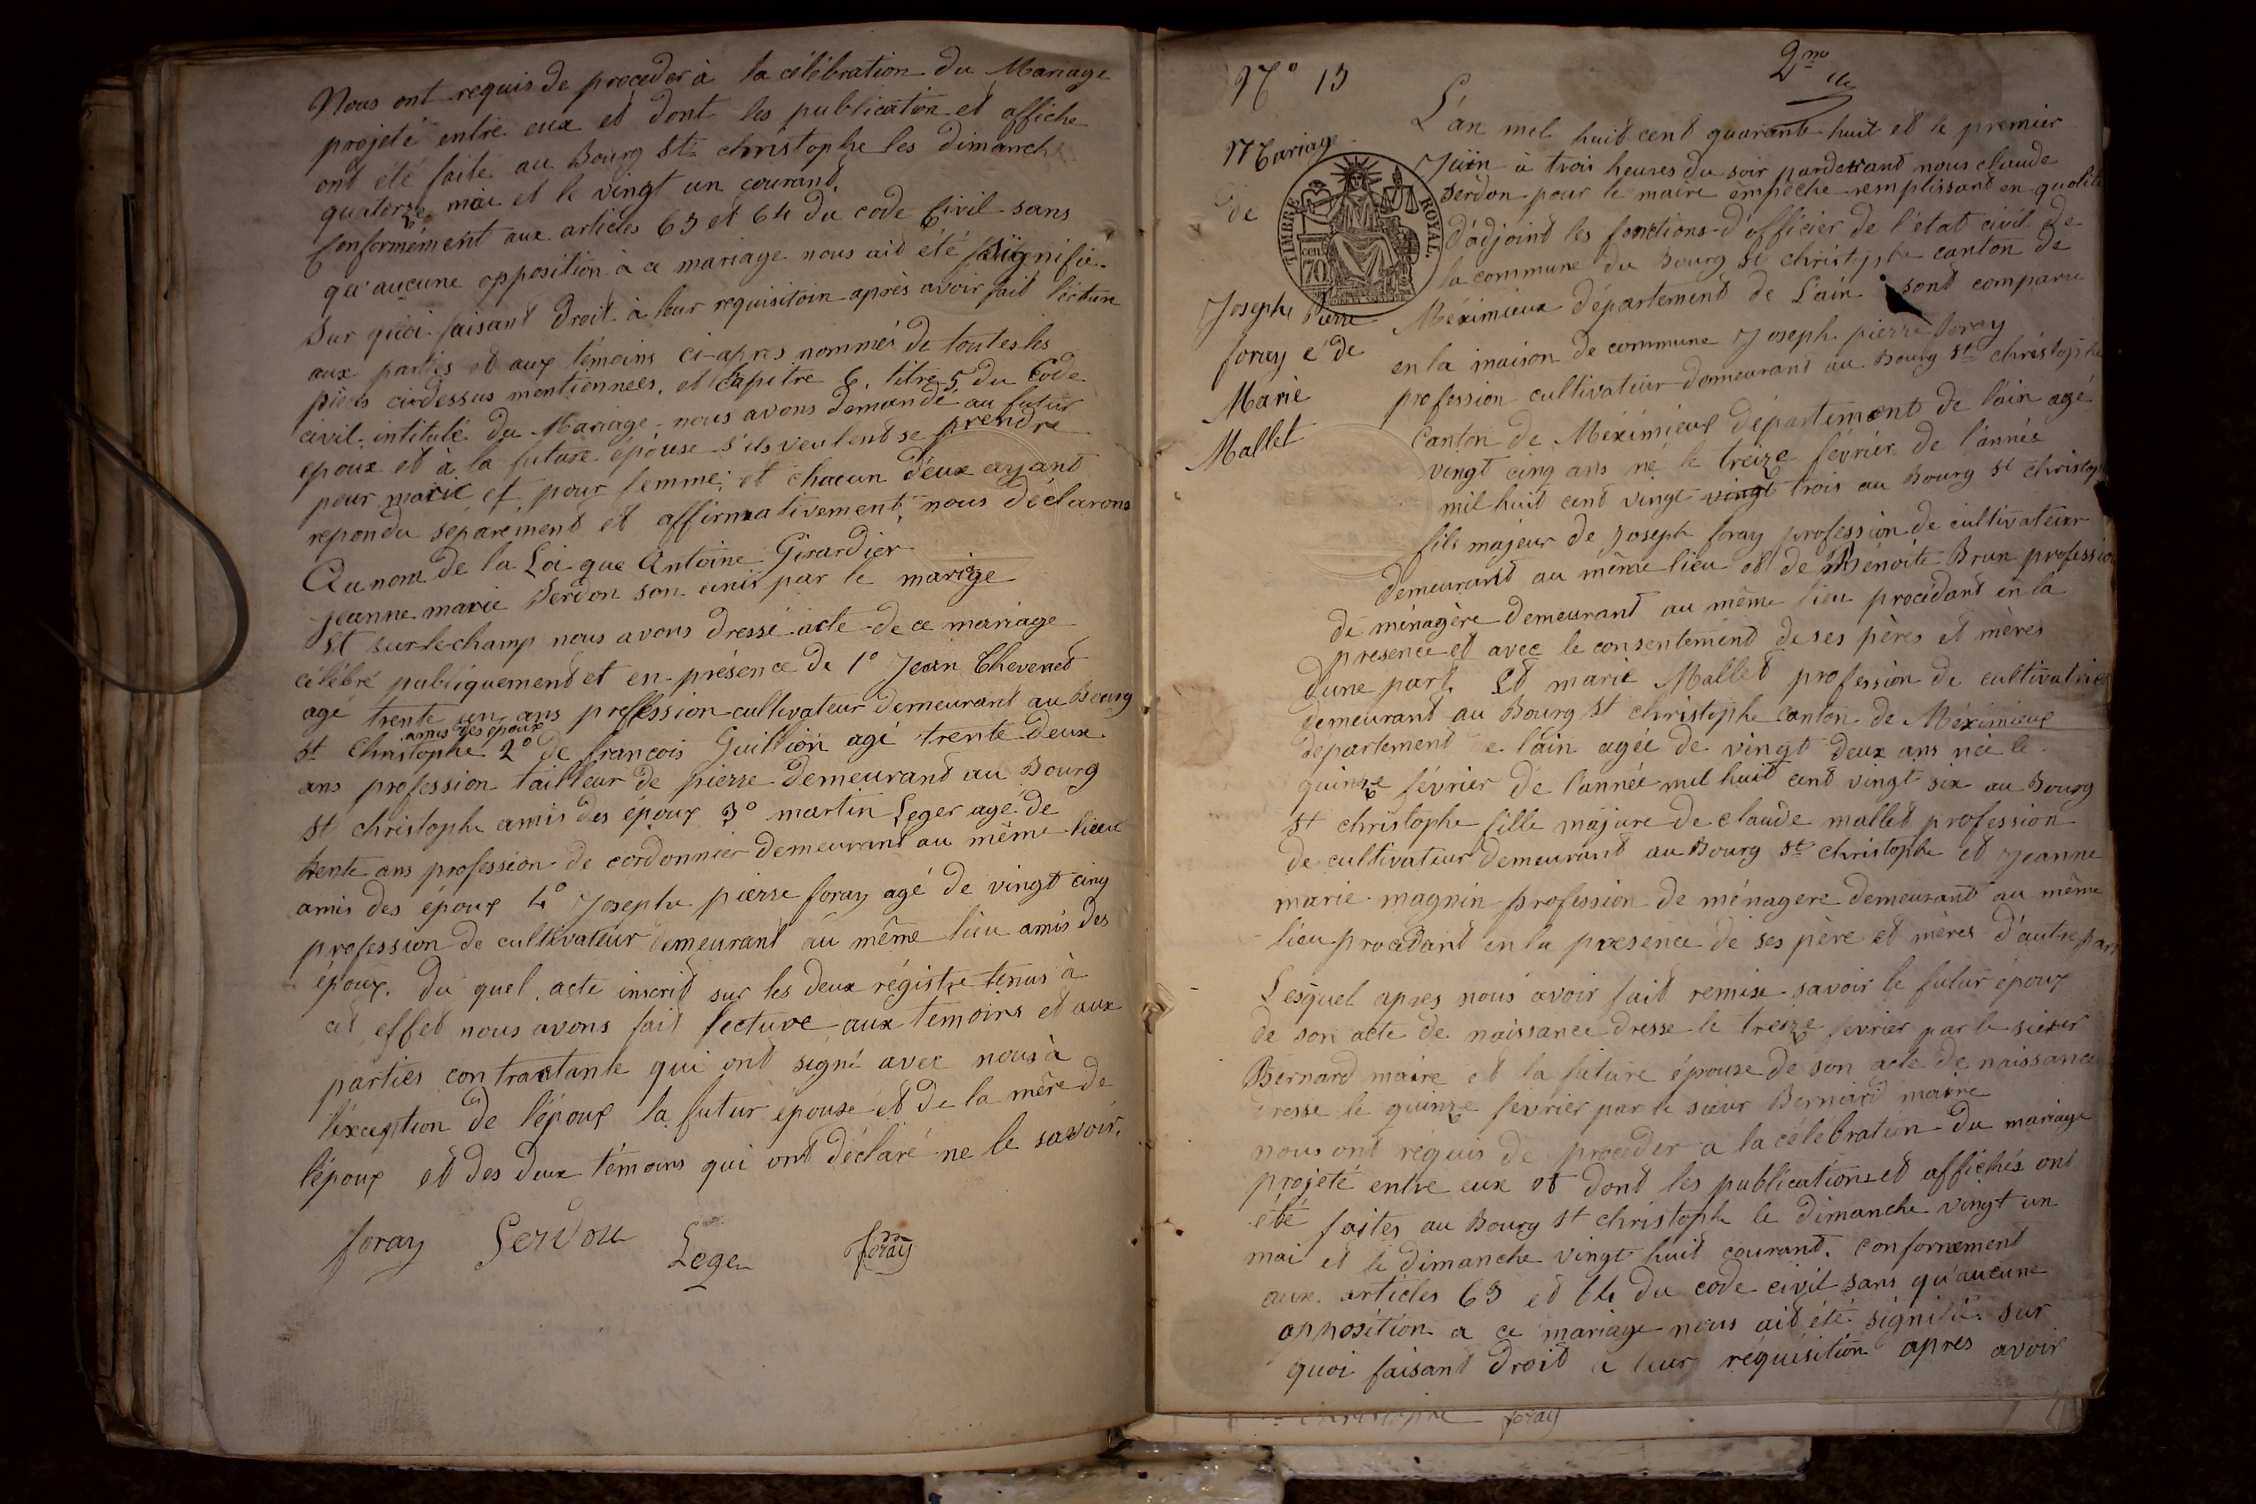 Nous ont requis de proceder à la célébration du Mariage
projeté entre eux et dont les publication et affiche
ont été faite au Bourg St christophe les dimanche
quatorze mai et le vingt un courant.
Conformément aux articles 63 et 64 du code Civil sans
qu'aucune opposition à ce mariage nous ait été signifié.
Sur quoi faisant droit à leur requisitoin après avoir fait lecture
aux partis et aux témoins ci-apres nommés de toutes les
pieces cidessus mentionnees, et Capitre 6, titre 5 du Code
civil intitulé du Mariage nous avons demandé au futur
epoux et à la future épouse s'ils veulent se prendre
pour marie et pour femme; et chacun d'eux ayant
repondu séparément et affirmativement, nous déclarons
Au nom de la Loi que Antoine Girardier
jeanne marie Serdon son unis par le mariage
Et sur-le-champ nous avons dressé acte de ce mariage
célébré publiquement et en présence de 1° Jean Chevenet
agé trente un ans profession cultivateur demeurant au Bourg
amis des époux
St Christophe 2° de francois Guillion agé trente deux
ans profession tailleur de pierre demeurant au Bourg
St christophe amis des époux 3° martin Leger agé de
trente ans profession de cordonnier demeurant au même lieux
amis des époux 4° Joseph pierre foray agé de vingt cinq
profession de cultivateur demeurant au même lieu amis des
époux. du quel acte inscrit sur les deux régistre tenus à
cet effet nous avons fait lecture aux temoins et aux
parties contractante qui ont signé avec nous à
l'éxception de l'époux la futur épouse et de la mère de
l'époux et des deux témoins qui ont déclaré ne le savoir.
foray Serdon Leger foray
2me
N° 13
Mariage
de
Joseph Pierre
foray e de
Marie
Mallet
TIMBRE ROYAL
cen 70
L'an mil huit cent quarante huit et le premier
Juin à trois heures du soir pardevant nous claude
Serdon pour le maire empeche remplissant en qualité
d'adjoint les fonctions d'officier de l'état civil de
la commune du Bourg St christphe canton de
Méximieux département de L'ain sont comparu
en la maison de commune Joseph pierre foray
profession cultivateur demeurant au Bourg St christophe
Canton de Méximieux département de l'ain agé
vingt cinq ans né le treize février de l'année
mil huit cent vingt vingt trois au Bourg St christop
fils majeur de Joseph foray profession de cultivateur
demeurant au même lieu et de Bénoite Brun profession
de ménagère demeurant au même lieu procédant en la
presence et avec le consentement de ses pères et mères
d'une part. Et marie Mallet profession de cultivatrice
demeurant au Bourg St christophe canton de Méximieux
departement de l'ain agée de vingt deux ans née le
quinze février de l'année mil huit cent vingt six au Bourg
St christophe fille majure de claude mallet profession
de cultivateur demeurant au Bourg St christophe et Jeanne
marie magnin profession de ménagere demeurant au même
lieu procedant en la presence de ses père et mères d'autre part,
Lesquel apres nous avoir fait remise savoir le futur époux
de son acte de naissance dresse le treize fevrier par le sieur
Bernard maire et la future épouse de son acte de naissance
dresse le quinze fevrier par le sieur Bernard maire
nous ont réquis de proceder a la célébration du mariage
projeté entre eux et dont les publications et affichés ont
été faites au Bourg St christoph le dimanche vingt un
mai et le dimanche vingt huit courant. Conformement
aux articles 63 et 64 du code civil sans qu'aucune
opposition a ce mariage nous ait été signifié. Sur
quoi faisant droit a leur réquisition apres avoir
christophe foray